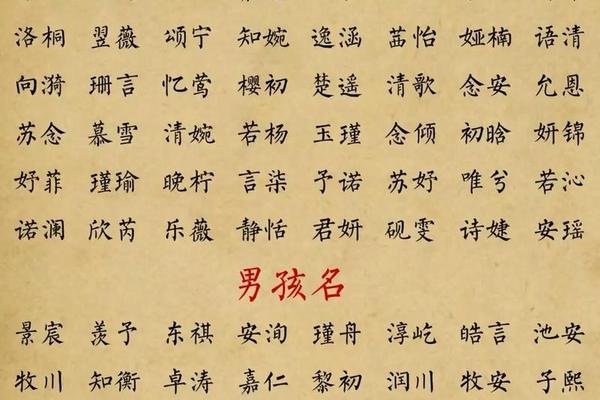 洛桐 翌薇 颂宁 知婉 逸涵 茁怡 娅楠 语清
向漪 珊言 忆莺 樱初 楚遥 清歌 念安 允恩
苏念 慕雪 清婉 若杨 玉瑾 念倾 初晗 妍锦
妤菲 瑾瑜 晚柠 言柒 予诺 苏妤 唯兮 若沁
诺澜 欣芮 乐薇 静恬 君妍 砚雯 诗婕 安瑶
男孩名
景宸 羡予 东祺 安洵 瑾舟 淳屹 皓言 池安
牧川 知衡 卓涛 嘉仁 黎初 润川 牧安 子熙